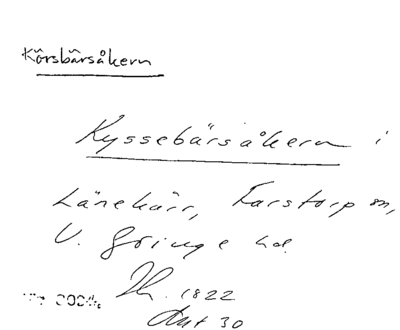 Körsbärsåkern
Kyssebärsåkern i
Länekärr, Karstorp sn,
V. Göinge hd.
1822
Akt 30